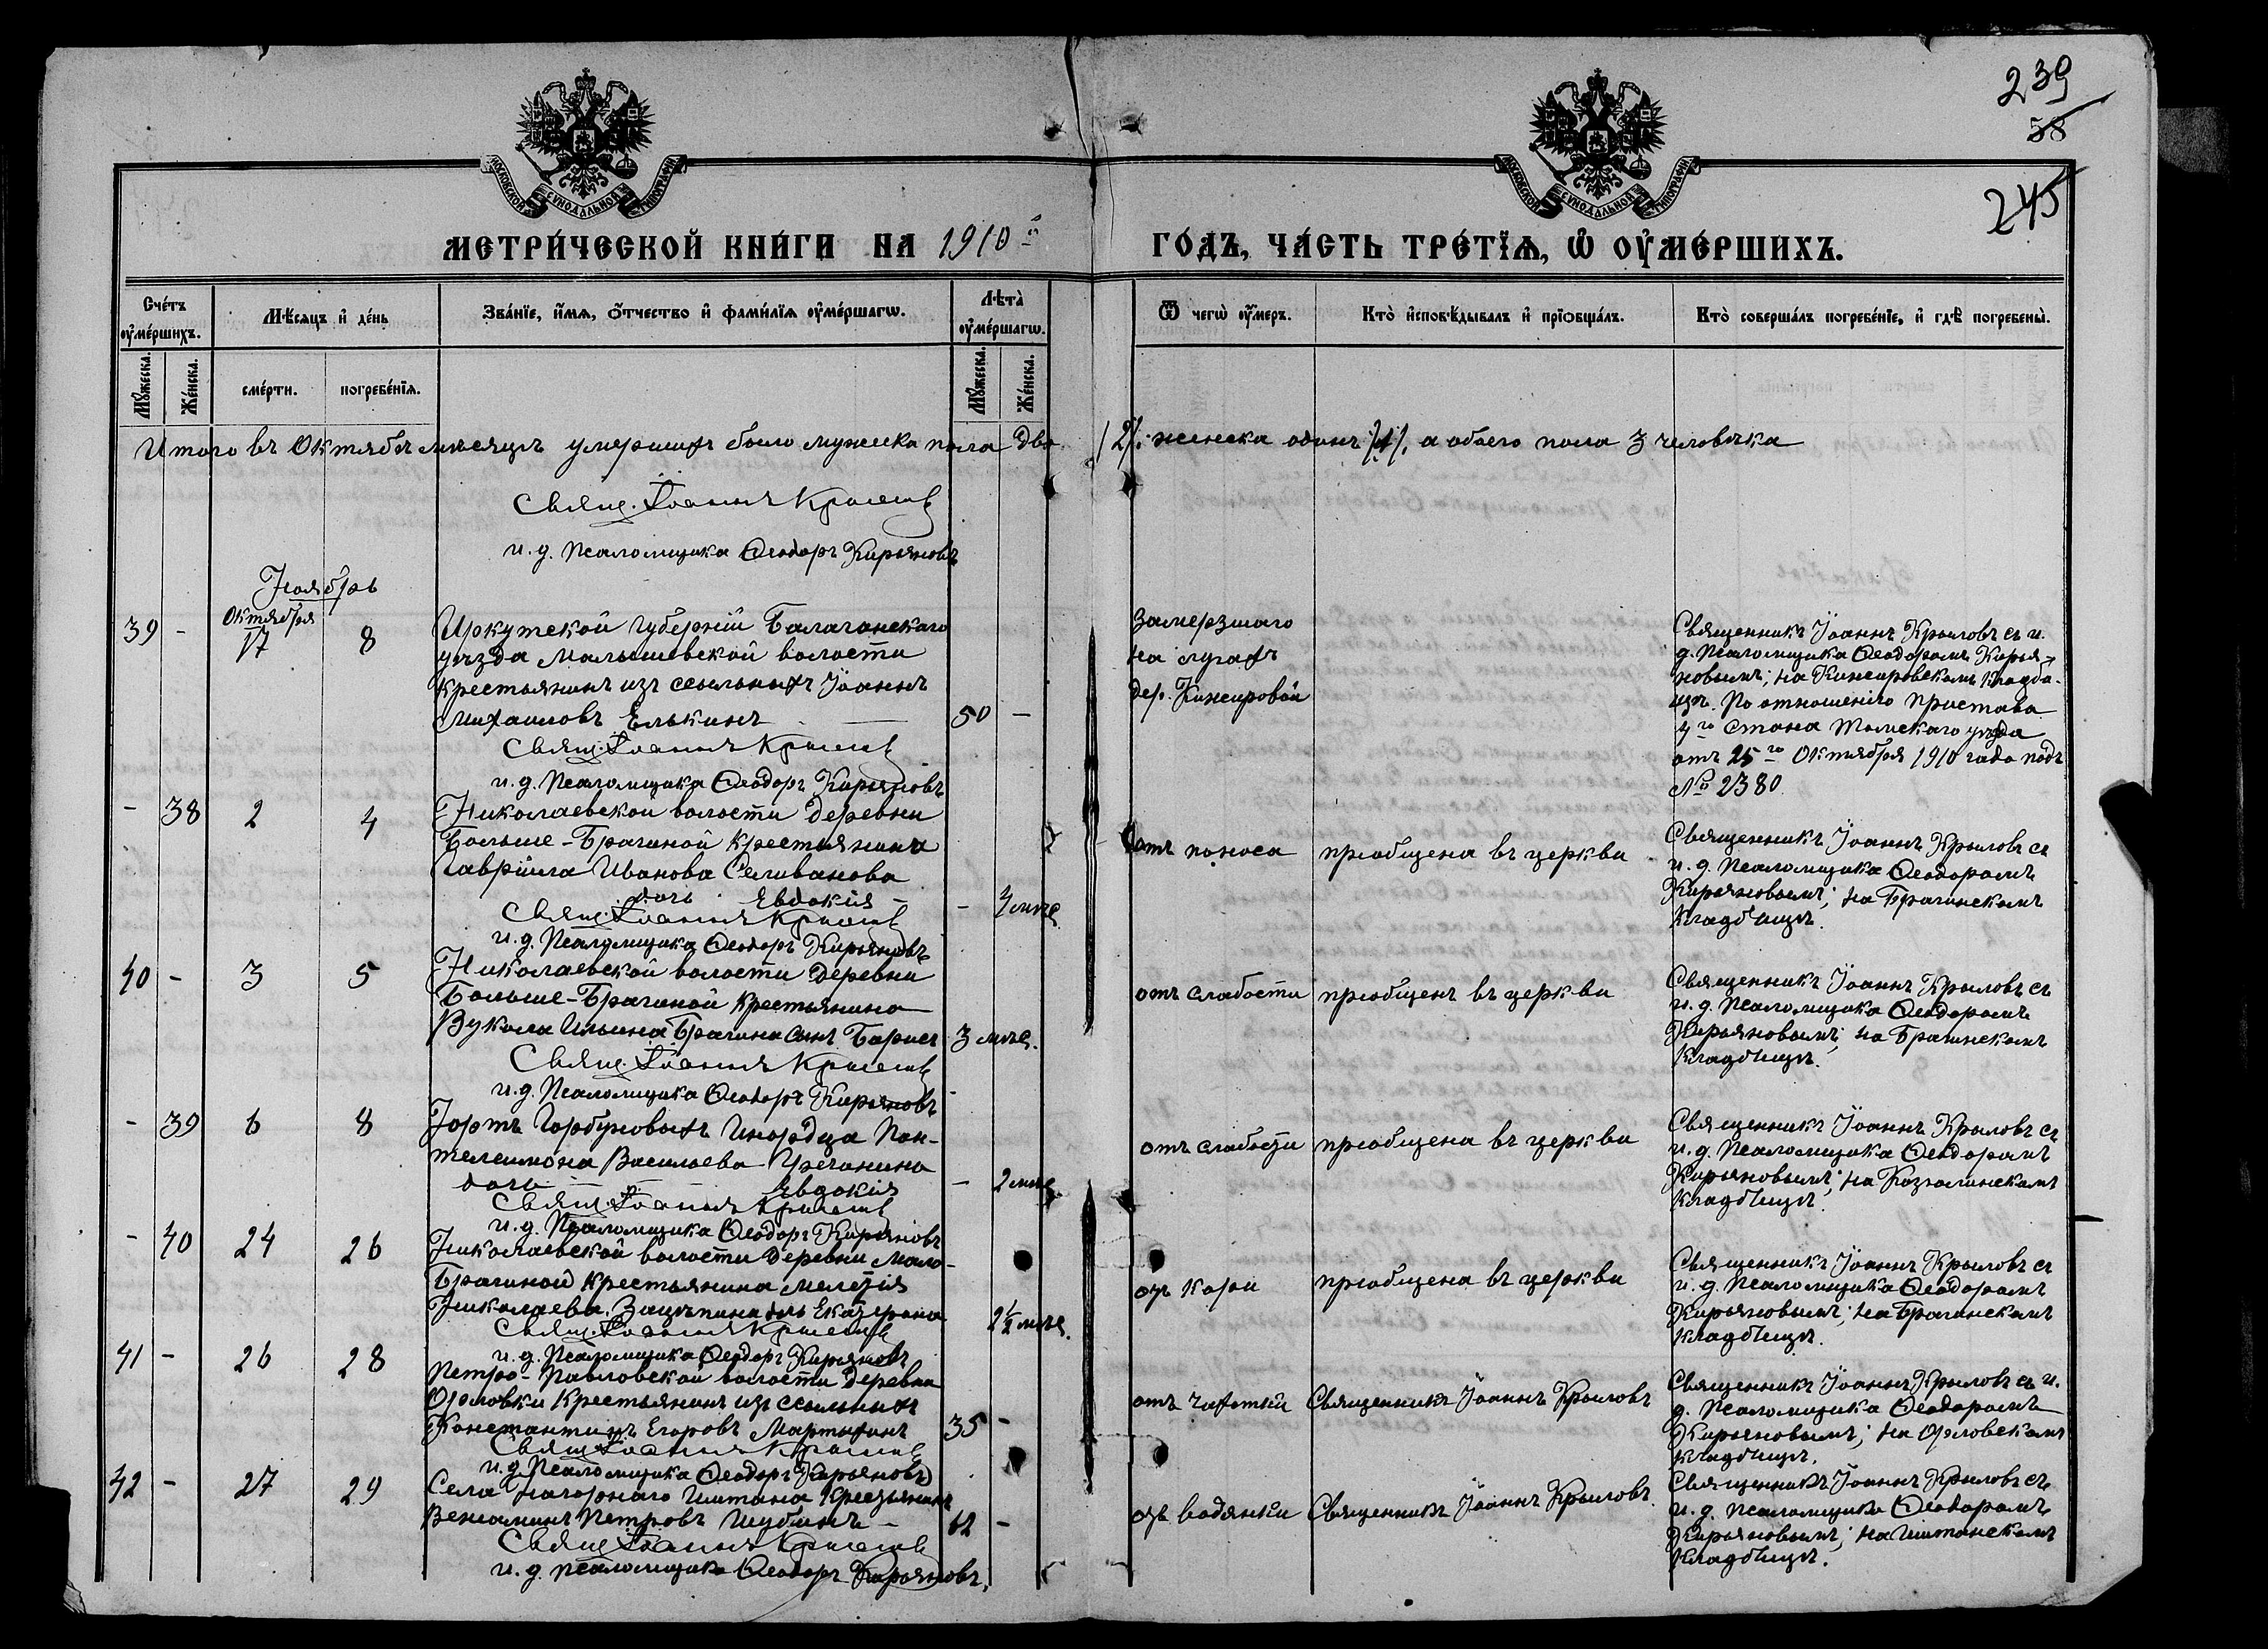 239
58
245
МОСКОВСКОЙ СѴНОДАЛЬНОЙ ТИПОГРАФИИ
МОСКОВСКОЙ СѴНОДАЛЬНОЙ ТИПОГРАФИИ
МЕТРИ́ЧЕСКОЙ КНИ́ГИ НА 1910й ГО́ДЪ, ЧА́СТЬ ТРЕ́ТЇѦ, Ѡ҆ ОУ҆МЕ́РШИХЪ.
Сче́тъ оу҆ме́ршихъ.
Мꙋ́жеска.
Же́нска.
Мѣ́сяцъ и҆ де́нь
сме́рти.
погребе́нїѧ.
Зва́нїе, и҆́мѧ, ѻ҆́тчество и҆ фами́лїѧ оу҆ме́ршагѡ.
Лѣта̀ оу҆ме́ршагѡ.
Мꙋ́жеска.
Же́нска.
Ѿ чегѡ̀ оу҆́меръ.
Кто̀ и҆сповѣ́дывалъ и҆ прїѡбща́лъ.
Кто̀ соверша́лъ погребе́нїе, и҆ гдѣ̀ погребены̀.
Итого въ Октябрѣ мѣсяцѣ умершихъ было мужеска пола два /2/. женска одинъ /1/, а обоего пола 3 человѣка
Свящ. Іоаннъ Крыловъ
и. д. Псаломщика Ѳеодоръ Кирьяновъ
Ноябрь
39 - Октября 17 8
Иркутской губерніи Балаганскаго
уѣзда Малышевской волости
крестьянинъ изъ ссыльныхъ Іоаннъ
Михаиловъ Елькинъ — 50 —
Свящ. Іоаннъ Крыловъ
и. д. Псаломщика Ѳеодоръ Кирьяновъ
Замерзшаго
на лугахъ
дер. Кижировой
Священникъ Іоаннъ Крыловъ съ и.
д. Псаломщика Ѳеодоромъ Кирья-
новымъ; на Кижировскомъ кладби-
щѣ. По отношенію Пристава
4го стана Томскаго уѣзда
отъ 25го Октября 1910 года подъ
№ 2380.
- 38 2 4
Николаевской волости деревни
Больше-Брагиной крестьянина
Гавріила Иванова Селиванова
дочь Евдокія - - 4 мѣс.
Свящ. Іоаннъ Крыловъ
и. д. Псаломщика Ѳеодоръ Кирьяновъ
отъ поноса
пріобщена въ церкви
Священникъ Іоаннъ Крыловъ съ
и. д. Псаломщика Ѳеодоромъ
Кирьяновымъ; на Брагинскомъ
кладбищѣ.
40 - 3 5
Николаевской волости деревни
Больше-Брагиной крестьянина
Вукола Ильина Брагина сынъ Борисъ 3 мѣс.
Свящ. Іоаннъ Крыловъ
и. д. Псаломщика Ѳеодоръ Кирьяновъ
отъ слабости
пріобщенъ въ церкви
Священникъ Іоаннъ Крыловъ съ
и. д. Псаломщика Ѳеодоромъ
Кирьяновымъ; на Брагинскомъ
кладбищѣ.
- 39 6 8
Юртъ Горбуновыхъ Инородца Пан-
телеимона Васильева
дочь — Евдокія - 2 мѣс.
Свящ. Іоаннъ Крыловъ
и. д. Псаломщика Ѳеодоръ Кирьяновъ
отъ слабости
пріобщена въ церкви
Священникъ Іоаннъ Крыловъ съ
и. д. Псаломщика Ѳеодоромъ
Кирьяновымъ; на Козюлинскомъ
кладбищѣ.
- 40 24 26
Николаевской волости деревни Мало-
Брагиной крестьянина Мелетія
Николаева Зацѣпина дочь Екатерина 2½ мѣс.
Свящ. Іоаннъ Крыловъ
и. д. Псаломщика Ѳеодоръ Кирьяновъ
отъ кори
пріобщена въ церкви
Священникъ Іоаннъ Крыловъ съ
и. д. Псаломщика Ѳеодоромъ
Кирьяновымъ; на Брагинскомъ
кладбищѣ.
41 - 26 28
Петро-Павловской волости деревни
Орловки крестьянинъ изъ ссыльныхъ
Константинъ Егоровъ Мартыхинъ 35 -
Свящ. Іоаннъ Крыловъ
и. д. Псаломщика Ѳеодоръ Кирьяновъ
отъ чахотки
Священникъ Іоаннъ Крыловъ
Священникъ Іоаннъ Крыловъ съ и.
д. Псаломщика Ѳеодоромъ
Кирьяновымъ; на Орловскомъ
кладбищѣ.
42 - 27 29
Села Нагорнаго Иштана крестьянинъ
Веніаминъ Петровъ Шубинъ - 62 -
Свящ. Іоаннъ Крыловъ
и. д. псаломщика Ѳеодоръ Кирьяновъ.
отъ водянки
Священникъ Іоаннъ Крыловъ
Священникъ Іоаннъ Крыловъ съ
и. д. псаломщика Ѳеодоромъ
Кирьяновымъ; на Иштанскомъ
кладбищѣ.